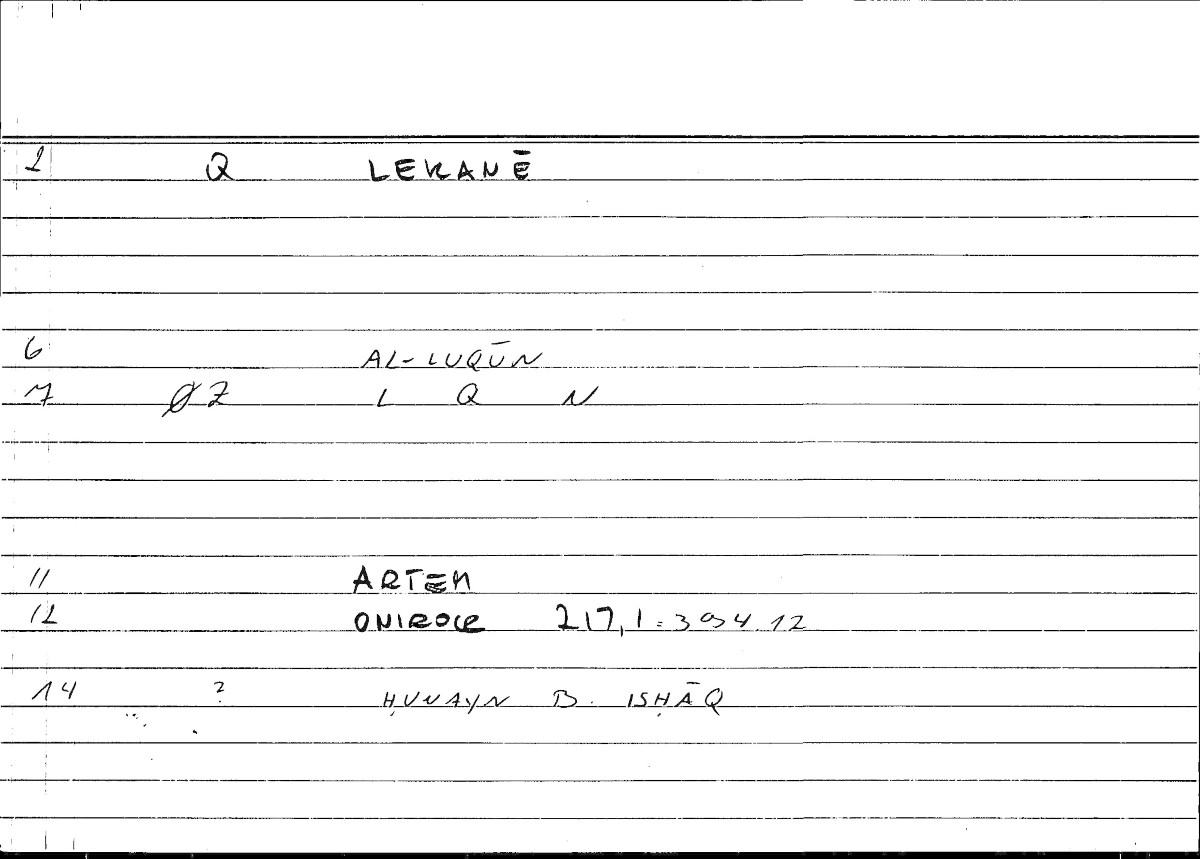 1 Q LEKANĒ
6 AL-LUQŪN
7 ØZ L Q N
11 ARTEM
12 ONIROCR 217,1 = 394.12
14 ? ḤUNAYN B. ISḤĀQ